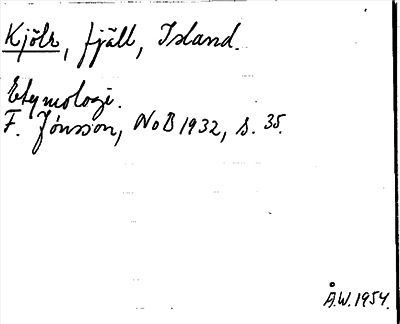 Kjölr, fjäll, Island.
Etymologi.
F. Jónsson, NoB 1932, s. 35.
Å.W. 1954.